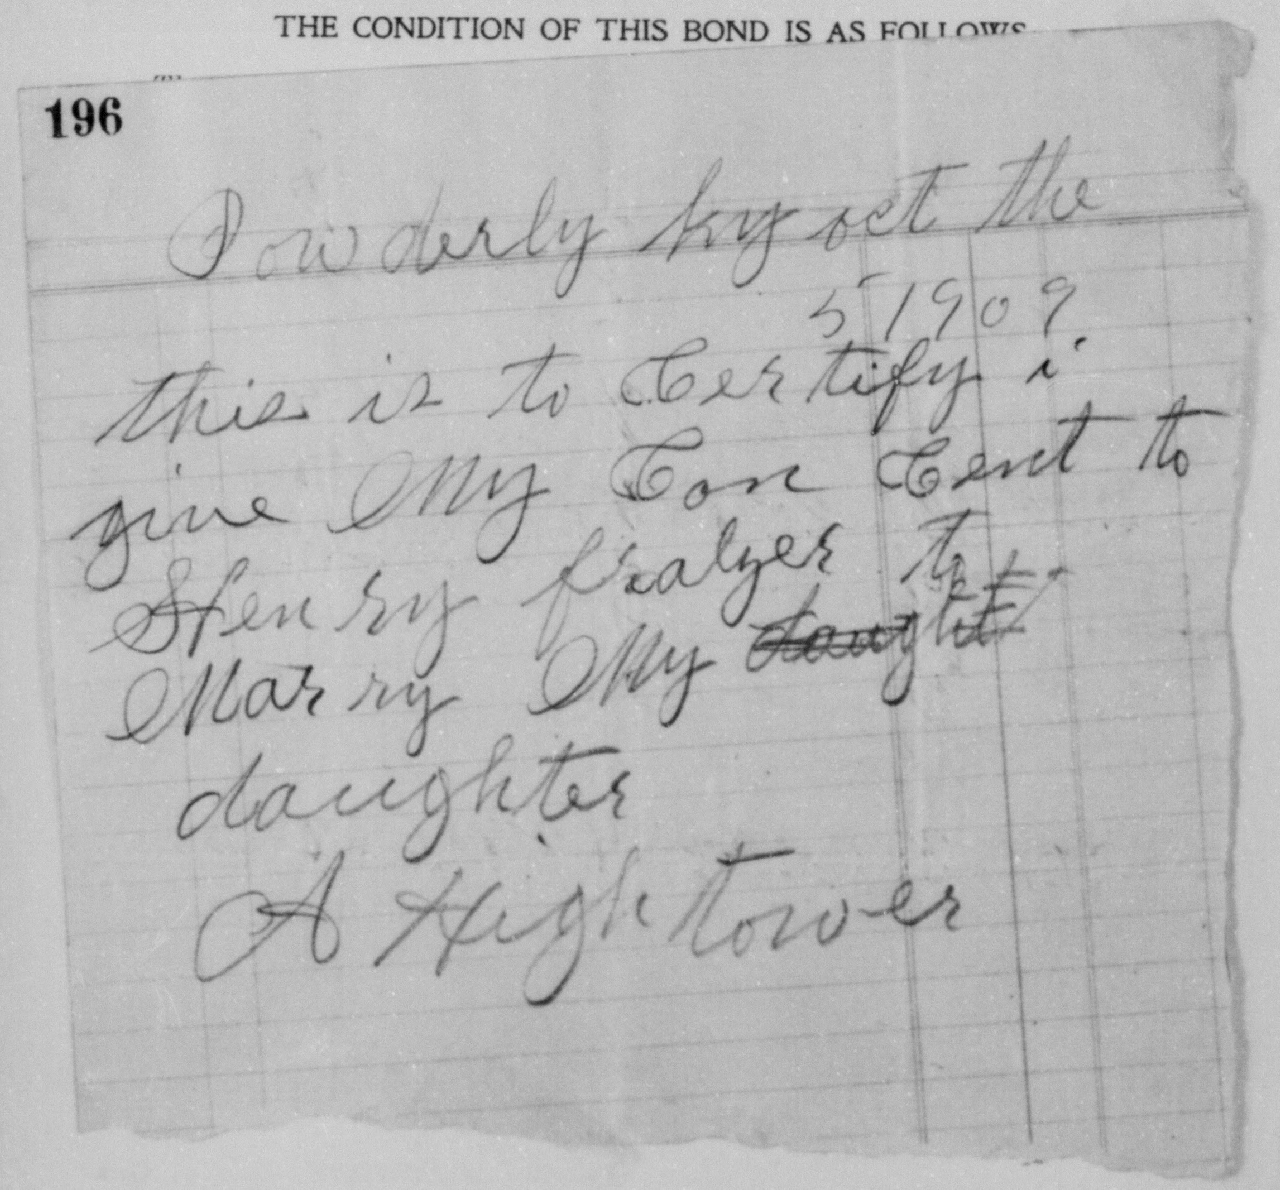 THE CONDITION OF THIS BOND IS AS FOLLOWS
196
Powderly ky oct the
5 1909
this is to Certify i
give My Con Cent to
Henry fralzer to
Marry My daught
daughter
A Hightower